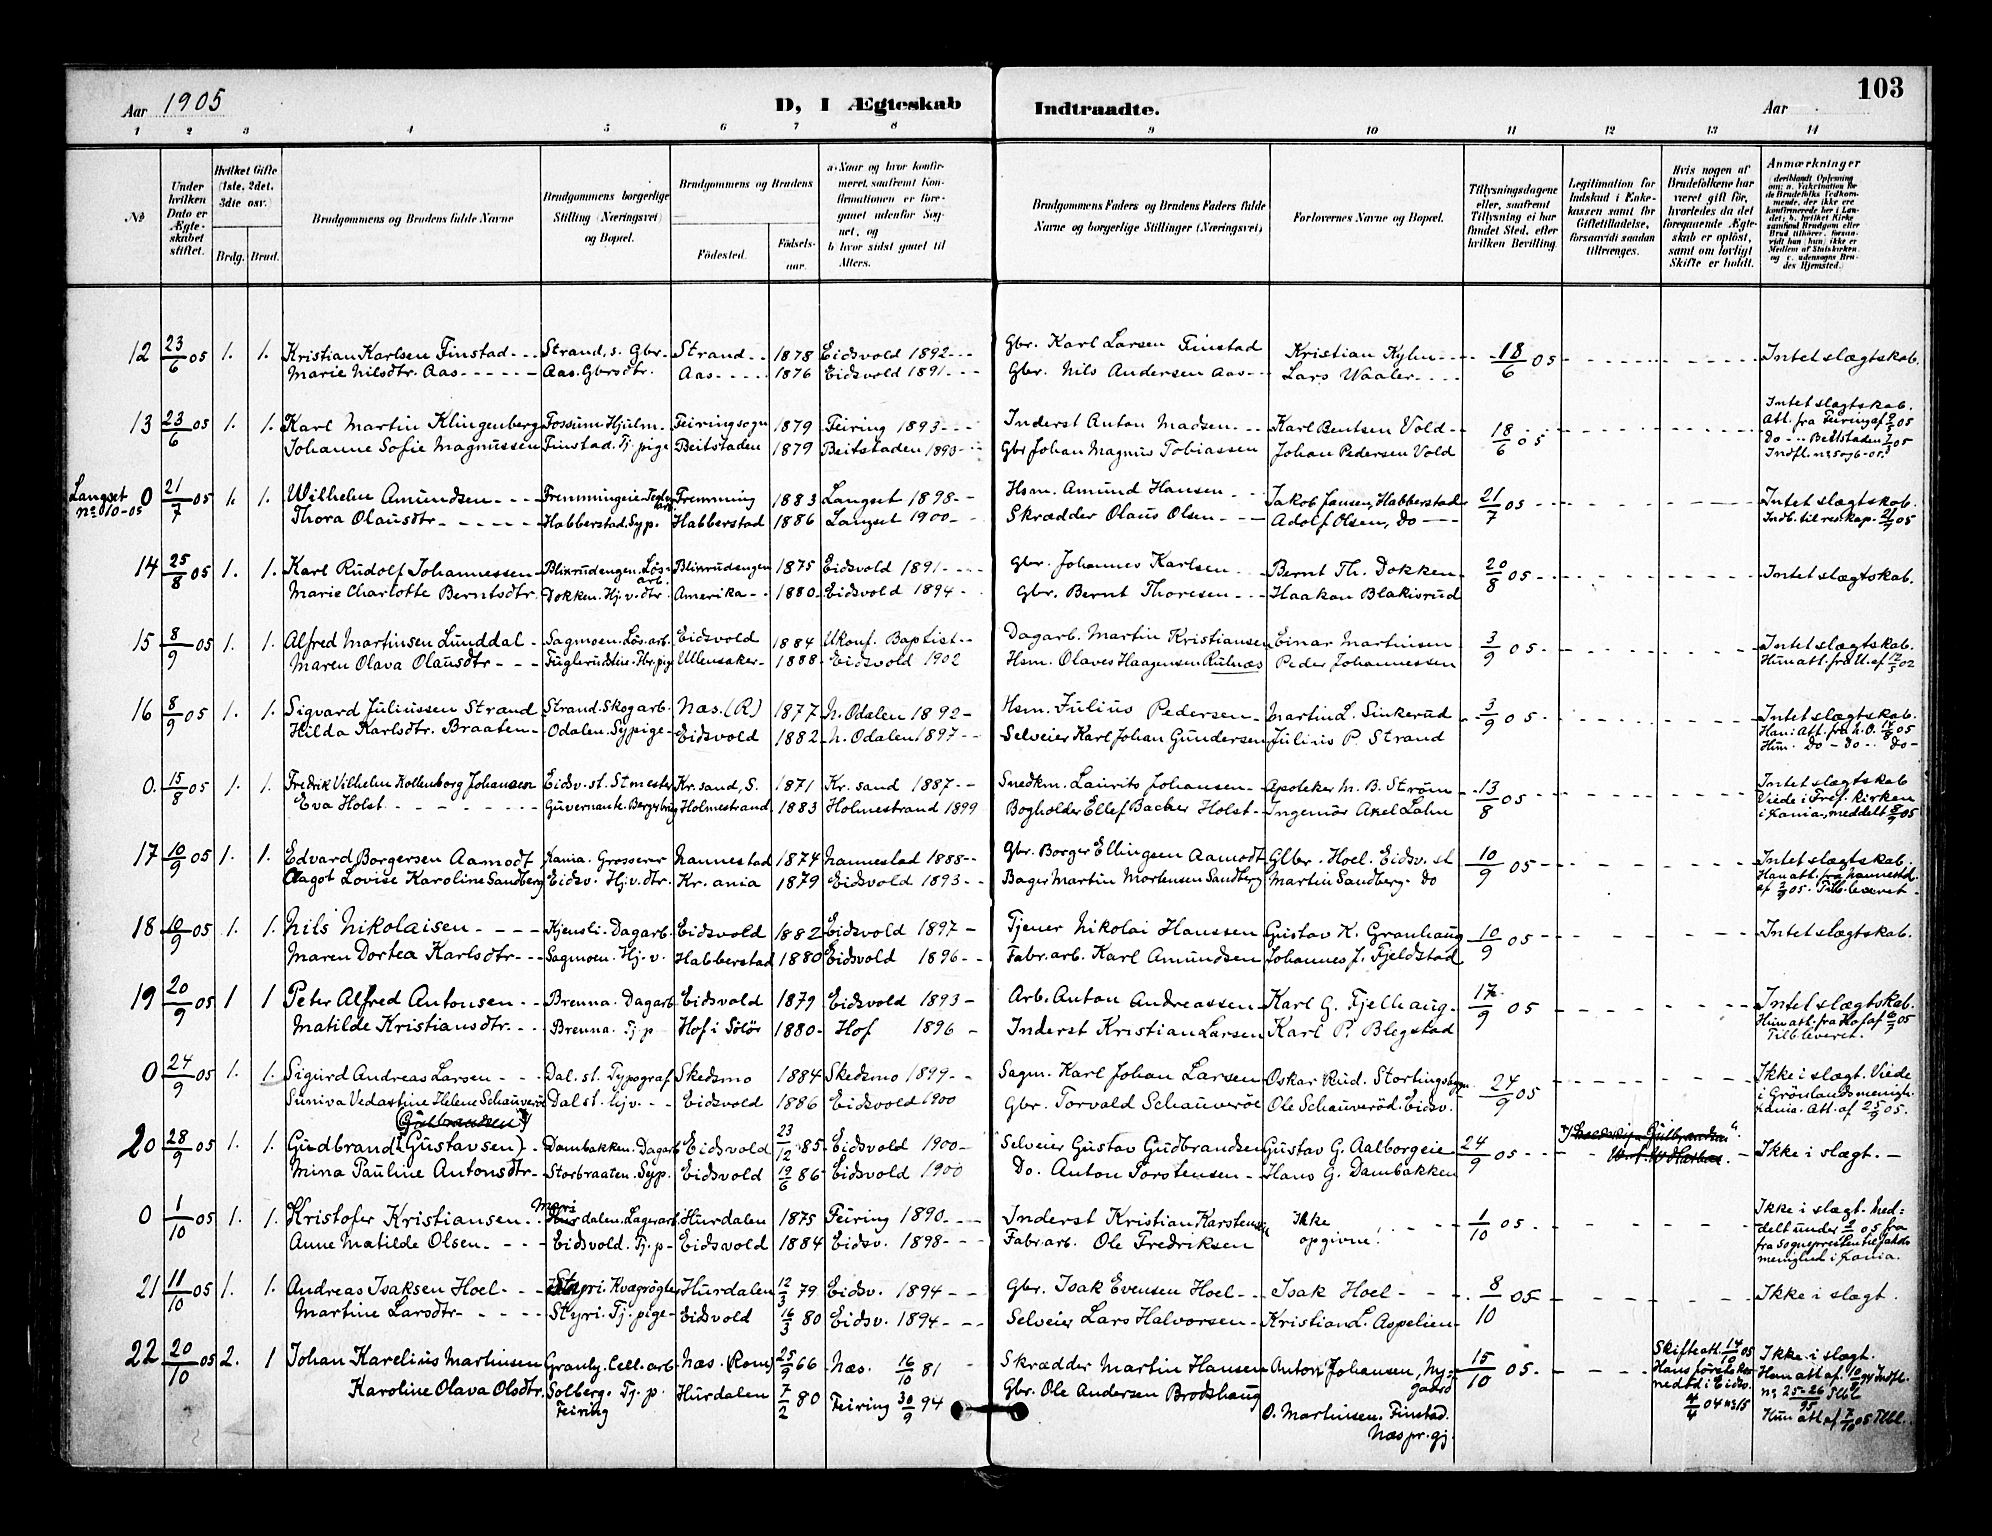 Aar 1905
D, I Ægteskab Indtraadte.
Aar
103
1 2 3 4 5 6 7 8 9 10 11 12 13 14
No
Under hvilken Dato er Ægteskabet stiftet.
Hvilket Gifte (1ste, 2det, 3die osv.)
Brdg. Brud.
Brudgommens og Brudens fulde Navne
Brudgommens borgerlige Stilling (Næringsvei) og Bopæl.
Brudgommens og Brudens
Fødested.
Fødsels-aar.
a. Naar og hvor konfirmeret, saafremt Konfirmationen er foregaaet udenfor Sognet, og
b. hvor sidst gaaet til Alters.
Brudgommens Faders og Brudens Faders fulde Navne og borgerlige Stillinger (Næringsvei)
Forlovernes Navne og Bopæl.
Tillysningsdagene eller, saafremt Tillysning ei har fundet Sted, efter hvilken Bevilling.
Legitimation for Indskud i Enkekassen samt for Giftetilladelse, forsaavidt saadan tiltrænges.
Hvis nogen af Brudefolkene har været gift før, hvorledes da det foregaaende Ægteskab er opløst, samt om lovligt Skifte er holdt.
Anmærkninger
12 23/6 05 1. 1. Kristian Karlsen Finstad Strand, s. Gbr. Strand 1878 Eidsvold 1892 Gbr. Karl Larsen Finstad Kristian Kylm 18/6 05 Intet slægtskab.
Marie Nilsdtr. Aas Aas. Gbrsdtr. Aas 1876 Eidsvold 1891 Gbr. Nils Andersen Aas Lars Waaler
13 23/6 05 1. 1. Karl Martin Klingenberg Fossum Hjulm. Feiringsogn 1879 Feiring 1893 Inderst Anton Madsen Karl Bentsen Vold 18/6 05 Intet slægtskab.
Johanne Sofie Magnussen Finstad. Tj. pige Beitstaden 1879 Beitstaden 1893 Gbr Johan Magnus Tobiassen Johan Pedersen Vold
Langset no 10-05 0 21/7 05 1. 1. Wilhelm Amundsen Fremming 1883 Langset 1898 Hsm. Amund Hansen Jakob Jansen, Habberstad 21/7 05 Intet slægtskab.
Thora Olausdtr Habberstad. Syp. Habberstad 1886 Langset 1900 Skrædder Olaus Olsen Adolf Olsen, do Indb. til res. kap. 21/9 05
14 25/8 05 1. 1. Karl Rudolf Johannessen Blixrudengen. Løs-arb. Blixrudengen 1875 Eidsvold 1891 Gbr. Johannes Karlsen Bernt Th. Dokken 20/8 05 Intet slægtskab.
Marie Charlotte Berntsdtr. Dokken. Hj. v. dtr. Amerika 1880 Eidsvold 1894 Gbr. Bernt Thoresen Haakon Blakisrud
15 8/9 05 1. 1. Alfred Martinsen Lunddal Sagmoen. Løs. arb. Eidsvold 1884 Ukonf. Baptist Dagarb. Martin Kristiansen Einar Martinsen 3/9 05 Intet slægtskab.
Maren Olava Olausdtr Ullensaker 1888 Eidsvold 1902 Hsm. Olaves Haagensen Rulnæs Peder Johannessen Hun att. fra U. af 12/5 02
16 8/9 05 1. 1. Sigvard Juliussen Strand Strand. Skogarb. Næs. (R) 1877 N. Odalen 1892 Hsm. Julius Pedersen Martin L. Sinkerud 3/9 05 Intet slægtskab.
Hilda Karlsdtr. Braaten Odalen. Sypige Eidsvold 1882 N. Odalen 1897 Selveier Karl Johan Gundersen Julius P. Strand
0. 15/8 05 1. 1. Fredrik Vilhelm Kollenborg Johansen Eidsv. st. Stmester Kr. sand, S. 1871 Kr. sand 1887 Snedkm. Laurits Johansen Apoteker M. B. Strøm 13/8 05 Intet slægtskab
Eva Holst Guvernante. Holmestrand 1883 Holmestrand 1899 Bogholder Ellef Backer Holst Ingeniør Axel Lahn Viede i Fref. kirken i Kania, meddelt 8/9 05
17 10/9 05 1. 1. Edvard Borgersen Aamodt Kania. Grosserer Nannestad 1874 Nannestad 1888 Gbr. Borger Ellingsen Aamodt Glbr. Hoel. Eidsv. st 10/9 05 Intet slægtskab.
Aagot Lovise Karoline Sandberg Eidsv. Hj. v. dtr. Kr. ania 1879 Eidsvold 1893 Bager Martin Mortensen Sandberg Martin Sandberg. do
18 10/9 05 1. 1. Nils Nikolaisen Kjensli. Dagarb. Eidsvold 1882 Eidsvold 1897 Tjener Nikolai Hanssen Gustav K. Granhaug 10/9 05 Intet slægtskab.
Maren Dortea Karlsdtr Sagmoen. Hj. v. Habberstad 1880 Eidsvold 1896 Fabr. arb. Karl Amundsen Johannes J. Fjeldstad
19 20/9 05 1 1 Peter Alfred Antonsen Brenna. Dagarb Eidsvold 1879 Eidsvold 1893 Arb. Anton Andreassen Karl G. Fjellhaug 17/9 05 Intet slægtskab.
Matilde Kristiansdtr. Brenna. Tj. p Hof i Solør 1880 Hof 1896 Inderst Kristian Larsen Karl P. Blegstad Hun att. fra Hof af 6/9 05 Tilbleveret.
0 24/9 05 1. 1. Sigurd Andreas Larsen Dal. st. Typograf Skedsmo 1884 Skedsmo 1899 Sagm. Karl Johan Larsen Oskar Rud. 24/9 05 Ikke i slægt. Viede
Suniva Vedastine Helene Schauverød Dal st. hjv. Eidsvold 1886 Eidsvold 1900 Gbr. Torvald Schauverød Ole Schauverød. Eidsv. i Grønlands menigh. Kania. Att. af 25/9 05.
20 28/9 05 1. 1. Gudbrand (Gustavsen) Dambakken. Dagarb Eidsvold 23/12 85 Eidsvold 1900 Selveier Gustav Gudbrandsen Gustav G. Aalborgeie 24/9 05 Ikke i slægt.
Mina Pauline Antonsdtr Storbraaten. Syp. Eidsvold 19/6 86 Eidsvold 1900 Do. Anton Torstensen Hans G. Dambakken
0 1/10 05 1. 1. Kristofer Kristiansen Hurdalen 1875 Feiring 1890 Inderst Kristian Karstensen Ikke opgivne. 1/10 05 Ikke i slægt. Med-
Anne Matilde Olsen Eidsvold. Tj. p Eidsvold 1884 Eidsv. 1898 Fabr. arb. Ole Fredriksen delt under 2/10 05 fra fra Sognepresten til Jakobs menighed i Kania.
21 11/10 05 1. 1. Andreas Isaksen Hoel Styri. Kvægrøgter Hurdalen 12/3 79 Eidsv. 1894 Gbr. Isak Evensen Hoel Isak Hoel 8/10 05 Ikke i slægt.
Martine Larsdtr Styri. Tj. pige Eidsvold 16/3 80 Eidsv. 1894 Selveier Lars Halvorsen Kristian L. Aspelien
22 20/10 05 2. 1 Johan Karelius Martinsen Granly. Cell. arb. Næs. (Rom) 25/9 66 Næs. 16/10 81 Skrædder Martin Hansen Anton Johansen, Ny-gaard 15/10 05 Skifteatt. 14/10 05 Ikke i slægt.
Karoline Olava Olsdtr. Solberg. Tj. p. Feiring Hurdalen 7/2 80 Feiring 30/9 94 Gbr. Ole Andersen Brodshaug O. Martinsen. Finstad. Næs pr. gj. Hun att. af 7/10 05 Tlbl.